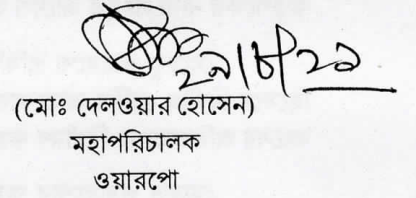 ২৯/৮/২১
(মোঃ দেলওয়ার হোসেন)
মহাপরিচালক
ওয়ারপো